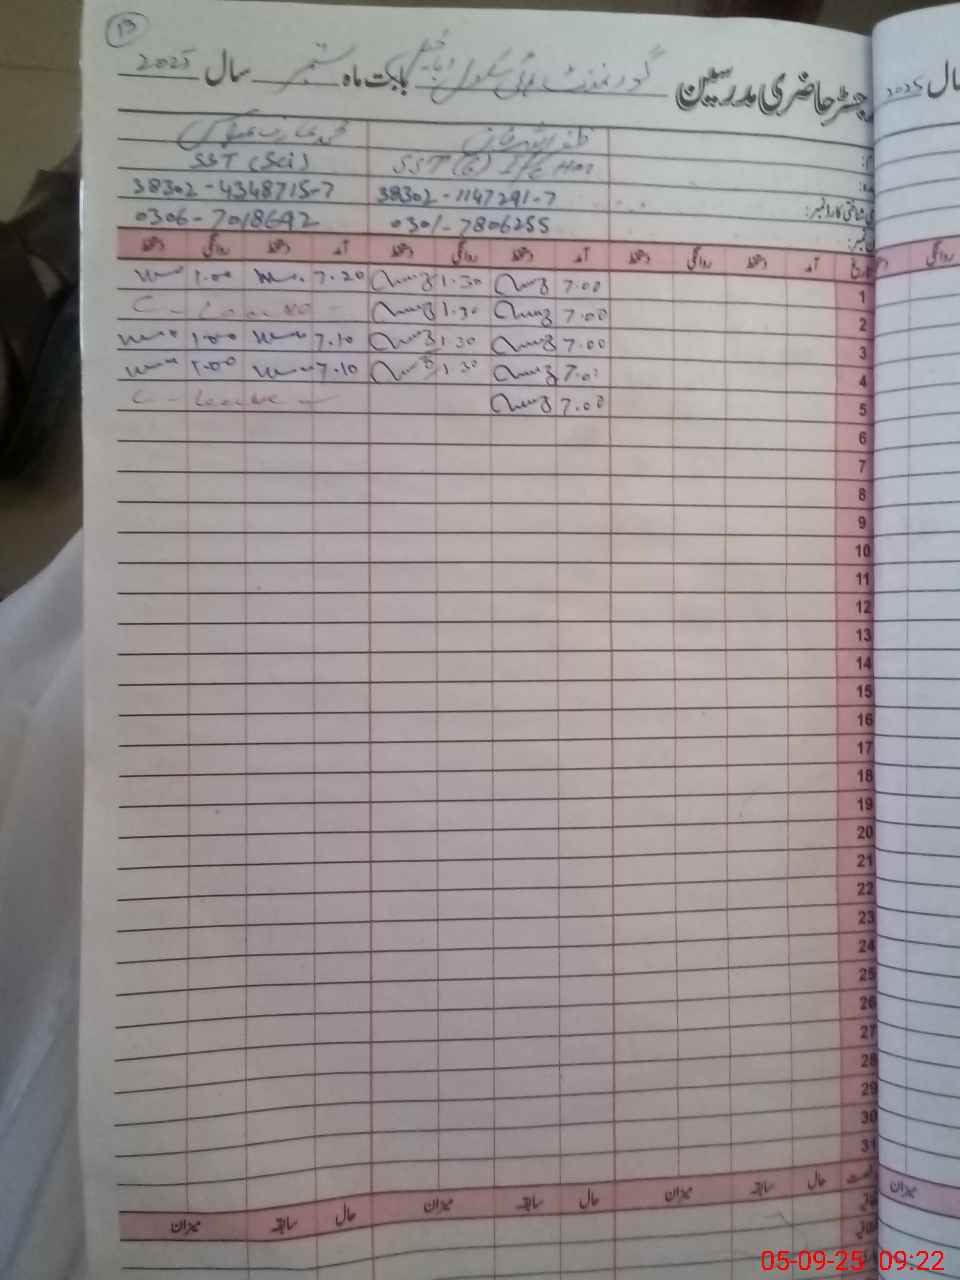 13
رجسٹر حاضری مدرسین گورنمنٹ ہائی سکول بابت ماہ ستمبر سال 2025
سال 2025
ظفر اللہ خان محمد
SST (G) I/C H.M SST (Sci)
شناختی کارڈ نمبر: 38302-1147291-7 38302-4348715-7
0301-7806255 0306-7018692
تاریخ آمد دستخط روانگی دستخط آمد دستخط روانگی دستخط آمد دستخط روانگی دستخط
روانگی دستخط
1 7.00 1.30 7.20 1.00
2 7.00 1.30 C- Leave
3 7.00 1.30 7.10 1.00
4 7.0 1.30 7.10 1.00
5 7.00 C- Leave
6
7
8
9
10
11
12
13
14
15
16
17
18
19
20
21
22
23
24
25
26
27
28
29
30
31
حال سابقہ میزان حال سابقہ میزان حال سابقہ میزان
میزان
05-09-25 09:22